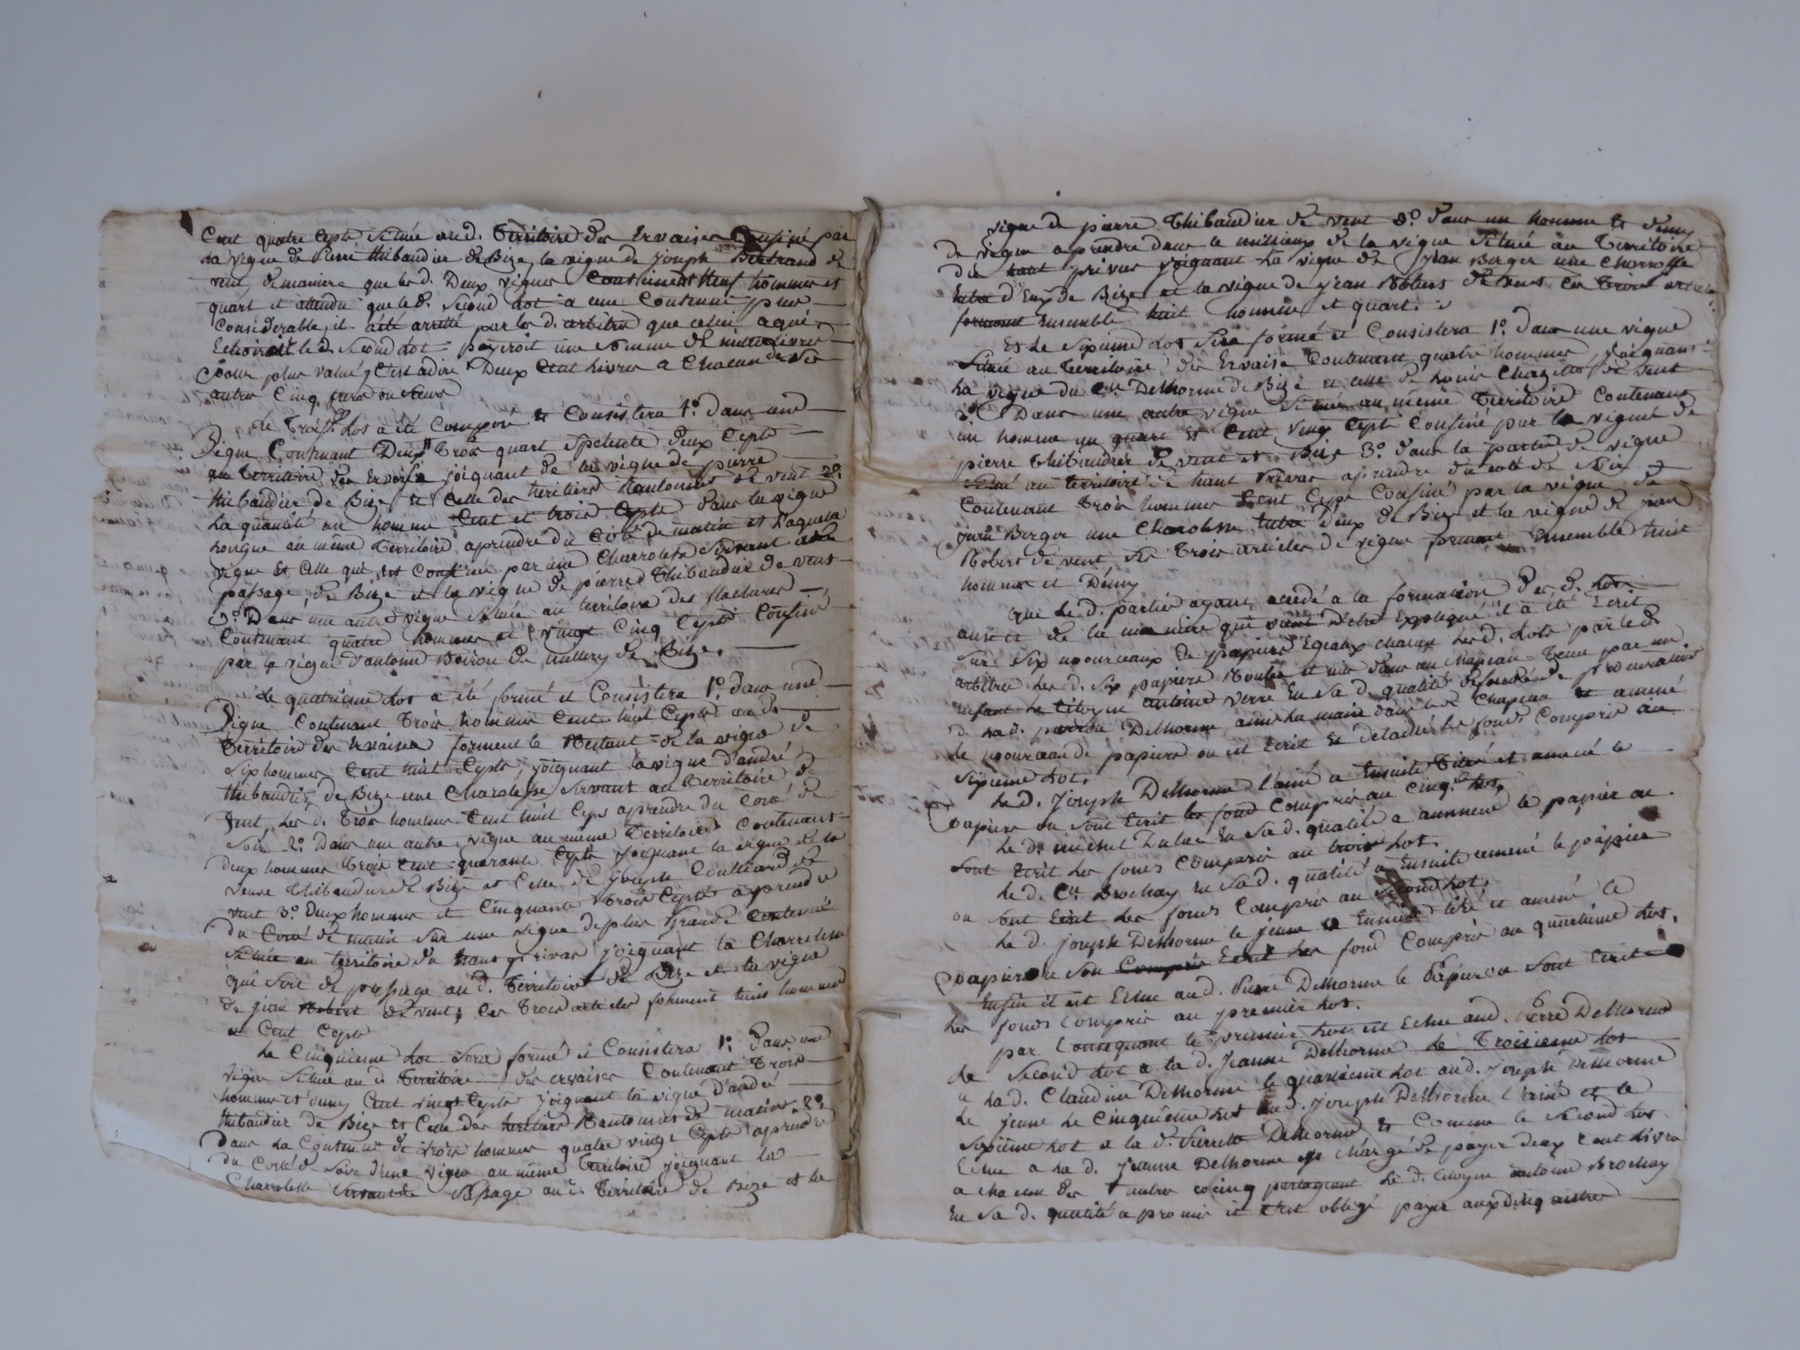 Cent quatre Cepts située aud. Territoire des Ervaises Confiné par
la vigne de Pierre thibaudier de Bize, la vigne de Joseph Bertrand de
vent, de maniere que led. Deux vignes Contiennent Neuf hommes et
quart et attendu que le d. Second Lot a une Contenue plus
Considerable, il a été arretté par les d. arbitres que celui a qui
Echoiroit le d. Second Lot payeroit une Somme de mille Livres
pour plus value, c'est adire Deux Cent Livres a Chacun de Ses
autres Cinq freres ou sœurs
le Trois.e Lot a été Composé et Consistera 1.° Dans une
Vigne Contenant Deux Trois quart Septente deux Cepts
au Territoire des Ervaises joignant de la vigne de pierre
thibaudier de Bize et Celle des heritiers Nantounas de vent 2.°
La quantité un homme Cent et trois Cepts Dans la vigne
longue au même Territoire aprendre du Côté de matin et laquelle
vigne Est Celle qui est Confinée par une Charrolesse Servant a la
passage, de Bize et la vigne de pierre Thibaudier de vent
3.° Dans une autre vigne Située au territoire des flachures
Contenant quatre hommes et vingt Cinq Cepts Confiné
par la vigne d'antoine Boirou de de Bize.
Le quatrieme Lot a été formé et Consistera 1.° dans une
Vigne Contenant Trois hommes Cent huit Cepts au d.
Territoire des Ervaises forment le Restant de la vigne de
Six hommes Cent huit Cepts, joignant la vigne d'andré
thibaudier de Bize une Charolesse Servant au Territoire de
Vent, les d. Trois hommes Cent huit Ceps aprendre du Côté de
Soir 2.° Dans une autre vigne au même Territoire Contenant
Deux hommes Trois Cent quarante Cepts joignant la vigne de la
Veuve Thibaudier de Bize et Celle de Joseph de
vent 3.° Deux hommes et Cinquante Trois Cepts aprendre
du Coté de matin Sur une vigne de plus Grande Contenue
Située au territoire du haut privas joignant la Charrolesse
qui Sert de passage au d. Territoire de Bize et la vigne
de jean Robert de vent; Ces Trois articles forment huit hommes
et Cent Cepts
Le Cinquieme Lot Sera formé et Consistera 1.° Dans une
Vigne Située au d. Territoire des ervaises Contenant Trois
hommes et demy Cent vingt Cepts joignant la vigne d'andré
thibaudier de Bize et Celle des heritiers Nantounas de matin 2.°
Dans la Contenue de trois hommes quatre vingt Cepts aprendre
du Costé de Soir d'une vigne au même Territoire joignant la
Charrolesse Servant de passage au d. Territoire de Bize et la
vigne de pierre Thibaudier de vent 3.° dans un homme Et demy
de vigne aprendre dans le millieux de la vigne Située au Territoire
du haut privas joignant la vigne de Jean Berger une Charrolesse
Entre d'Eux de Bize et la vigne de jean Robert de vent Ces Trois articles
formant Ensemble huit hommes et quart.
Et le Sixieme Lot Sera formé et Consistera 1.° dans une vigne
Située au Territoire des Ervaises Contenant quatre hommes joignant
La vigne du C.en Delhorme de Bize et celle de Louis Chazette de Vent
2.° Dans une autre vigne Située au même Territoire Contenant
un homme un quart Et Cent Vingt Cepts Confiné par la vigne de
pierre Thibaudier de vent et Bize 3.° dans la partie de vigne
Située au territoire de haut Privas aprendre du coté de Soir
Contenant Trois hommes Cent Cepts Confiné par la vigne de
Jean Berger une Charolesse Entre deux de Bize et la vigne de jean
Robert de vent, Les Trois articles de vigne formant Ensemble huit
hommes et Demy
Que Le d. parties ayant accedé a la formation Des d. Lots
aussi de la maniere qui vient d'etre Expliqué il a été Ecrit
Sur Six mourceaux de papiers Egeaux chacun des d. Lots par le d.
arbitre Les d. Six papiers Roulés et mis dans un Chapeau Tenu par un
enfant Le Citoyen antoine Verre En Sa d. qualité de fondé de procuration
de la d. pierrette Delhorme a mis La main dans le d. Chapeau et amené
le mourceau de papiers ou est Ecrit Et detaché les fonds Compris au
Sixieme Lot.
Le d. Joseph Delhorme l'ainé a Ensuite Tiré et amené le
papiers ou sont Ecrit les fond Compris au Cinq.e Lot,
Le d. michel Dulac En Sa d. qualité a ammené le papier ou
Sont Ecrit Les fonds Compris au trois Lot.
Le d. C.en Brochay En Sa d. qualité a Ensuite amené le papier
ou Sont Ecrit Les fonds Compris au Second Lot.
Le d. joseph Delhorme le jeune a Ensuite tiré et amené le
papiers ou Son Compris Ecrit Les fond Compris au quatrieme Lot.
Enfin il est Echu au d. Pierre Delhorme le Papier ou Sont Ecrit
Les fonds Compris au premier Lot.
par Consequent le premier Lot est Echu aud. Pierre Delhorme
Le Second Lot a la d. Jeanne Delhorme Le Troisieme Lot
a la d. Claudine Delhorme le quatrieme Lot au d. Joseph Delhorme
Le jeune le Cinquieme Lot au d. Joseph Delhorme l'ainé et le
Sixieme Lot a la d. Pierrette Delhorme Et Comme le Second Lot
Echu a la d. Jeanne Delhorme Est Chargé de payer deux Cent Livres
a chacun des autres cocinq partageant Le d. Citoyen antoine Brochay
En Sa d. qualité a promis et C'est obligé payer aux Cinq autres